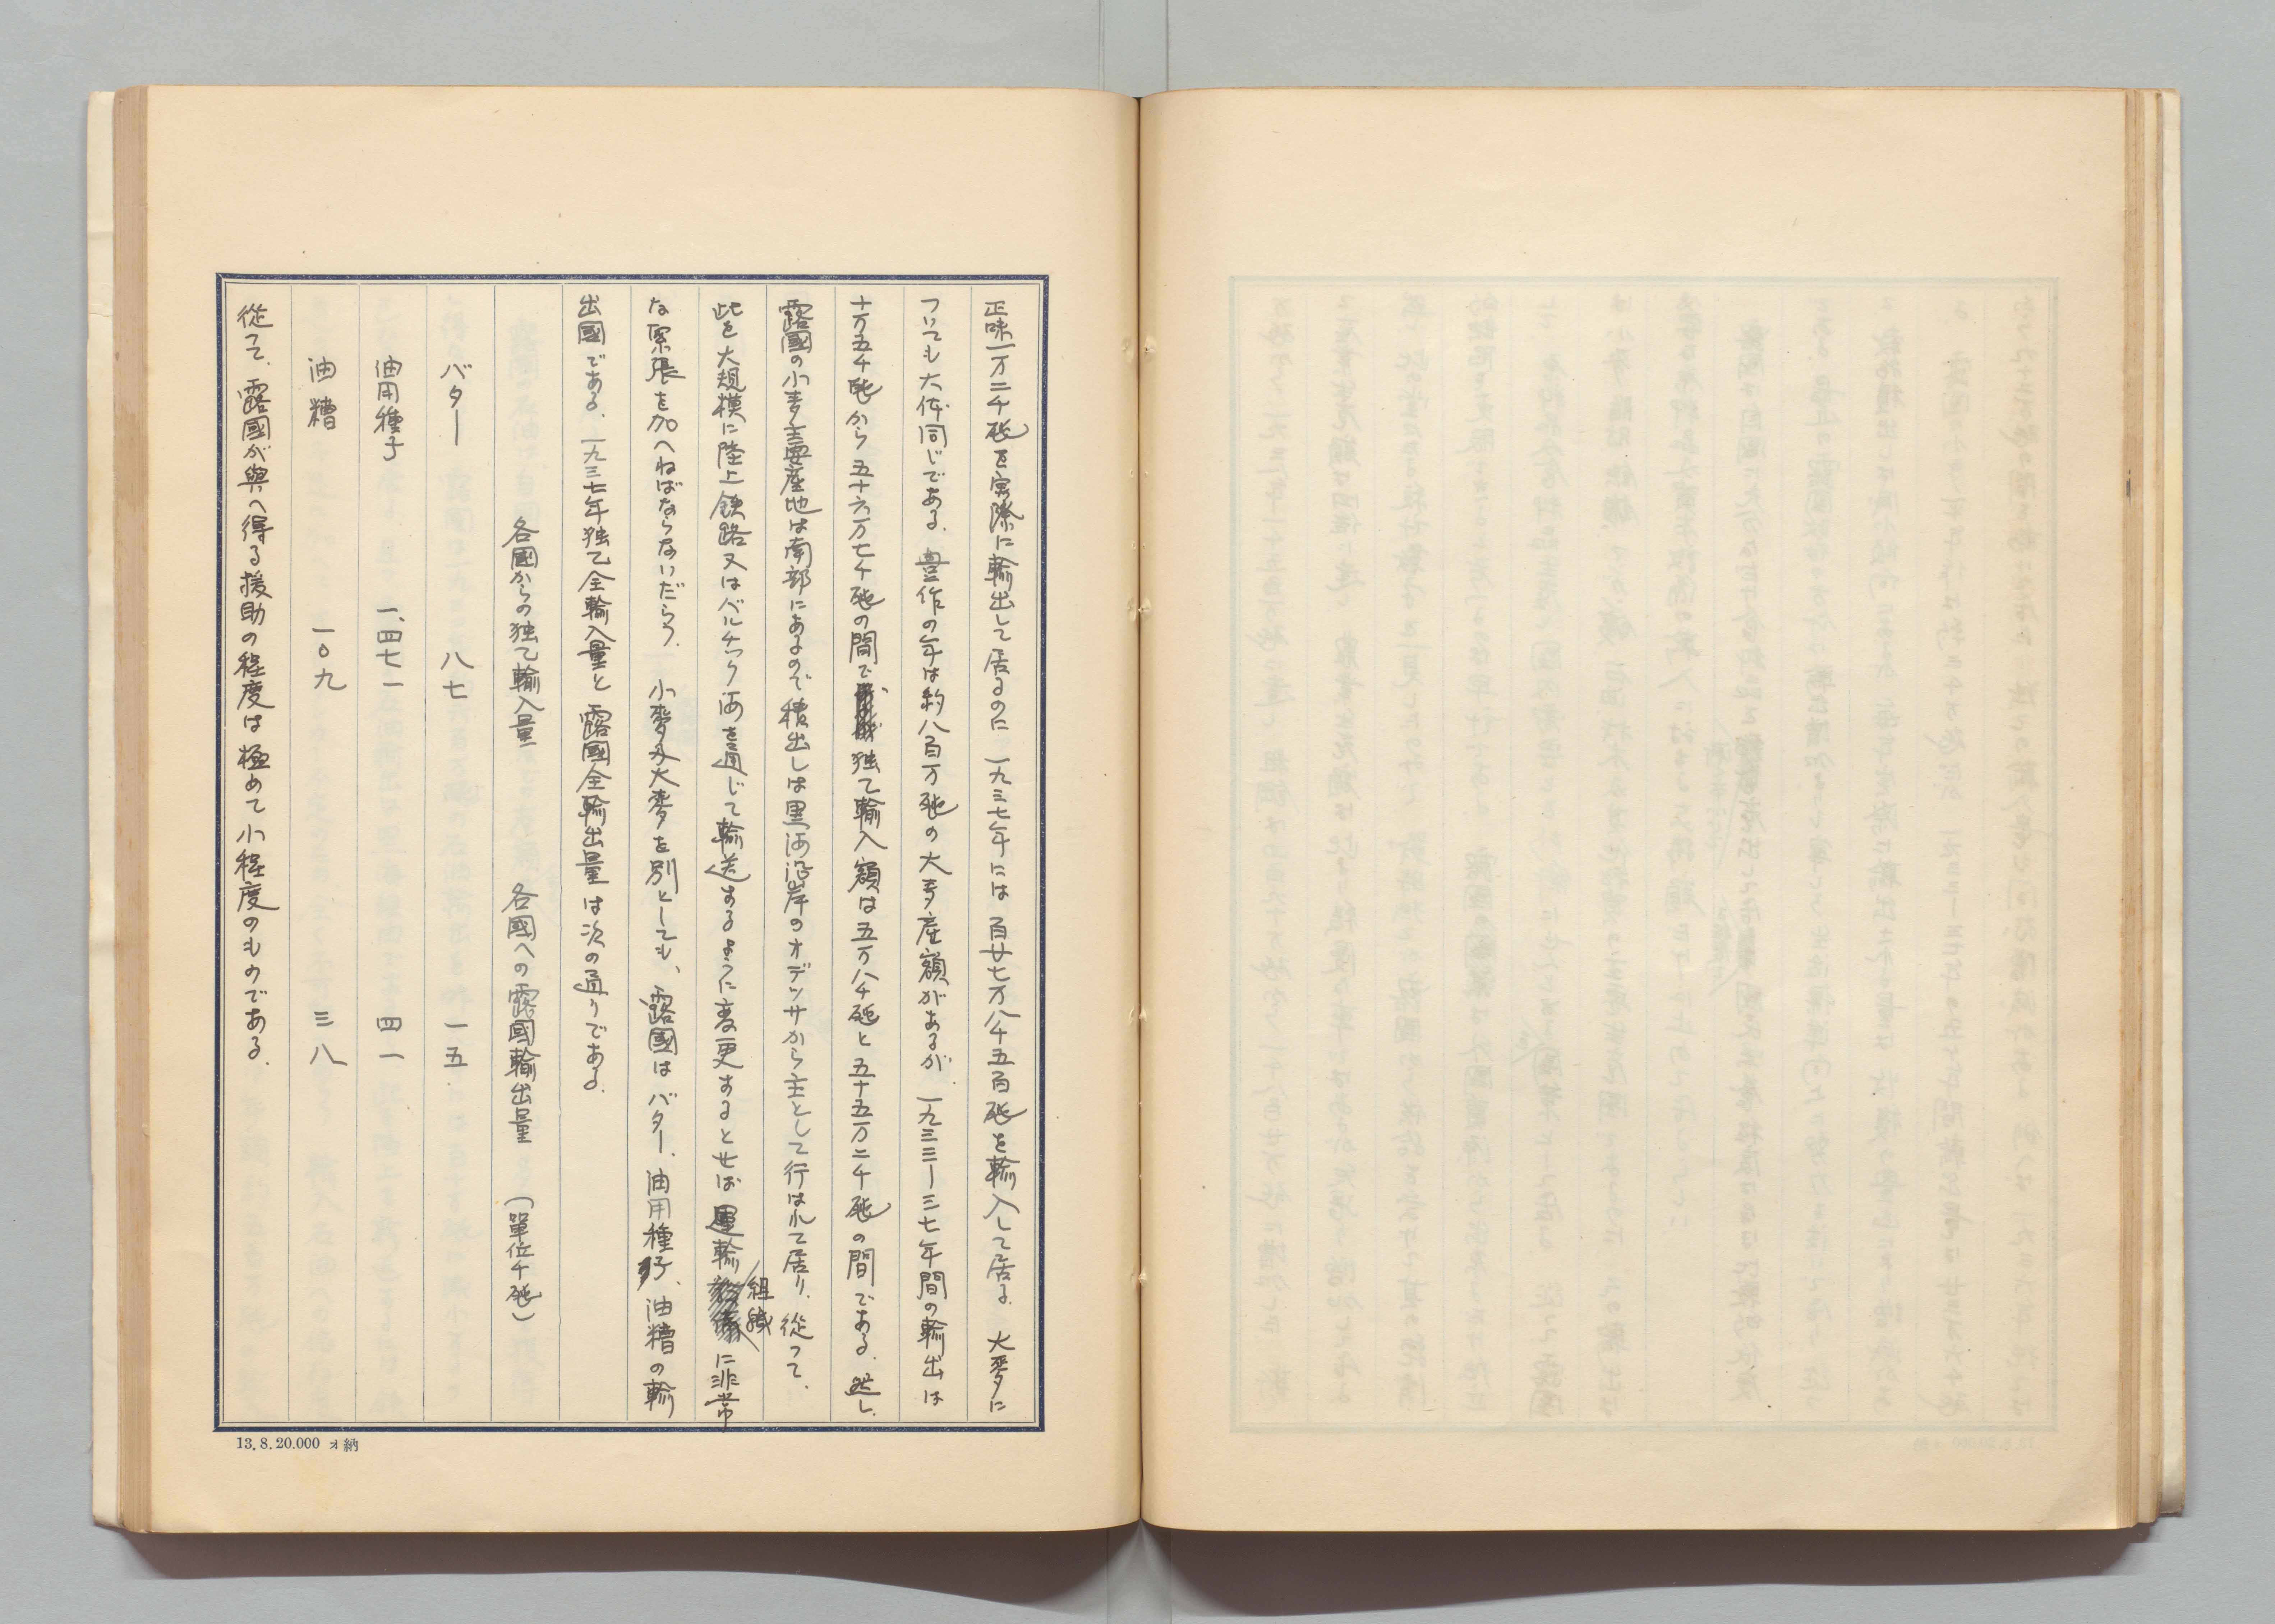 正味一万二千瓲を実際に輸出して居るのに 一九三七年には 百廿七万八千五百瓲を輸入して居る 大麥に
ついても大体同じである。豊作の年は約八百万瓲の大麦産額があるが、一九三三—三七年間の輸出は
十万五千瓲から五十六万七千瓲の間で 独乙輸入額は五万八千瓲と五十五万二千瓲の間である。然し、
露國の小麦主要産地は南部にあるので積出しは黒海沿岸のオデッサから主として行はれて居り、従つて、
此を大規模に陸上鉄路又はバルチック海を通じて輸送するように変更するとせば運輸組織に非常
な緊張を加へねばならないだらう。 小麥及大麥を別としても、露國はバター、油用種子、油糟の輸
出國である。一九三七年独乙全輸入量と露國全輸出量は次の通りである。
各國からの独乙輸入量 各國への露國輸出量 (單位千瓲)
バター 八七 一五
油用種子 一、四七一 四一
油糟 一〇九 三八
従つて、露國が與へ得る援助の程度は極めて小程度のものである。
13.8.20.000 オ納